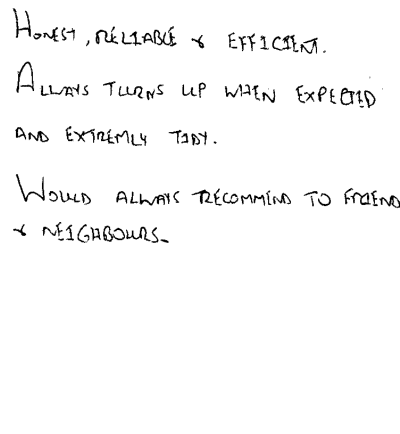 HONEST, RELIABLE & EFFICIENT.
ALWAYS TURNS UP WHEN EXPECTED
AND EXTREMLY TIDY.
WOULD ALWAYS RECOMMEND TO FRIEND
& NEIGHBOURS.